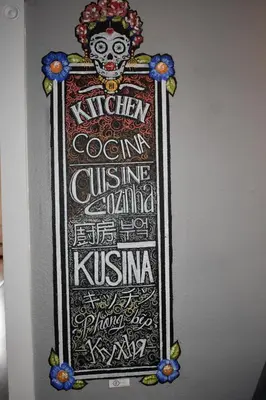 KITCHEN
COCINA
CUISINE
Cozinha
厨房 부엌
KUSINA
キッチン
Phòng bếp
Кухня